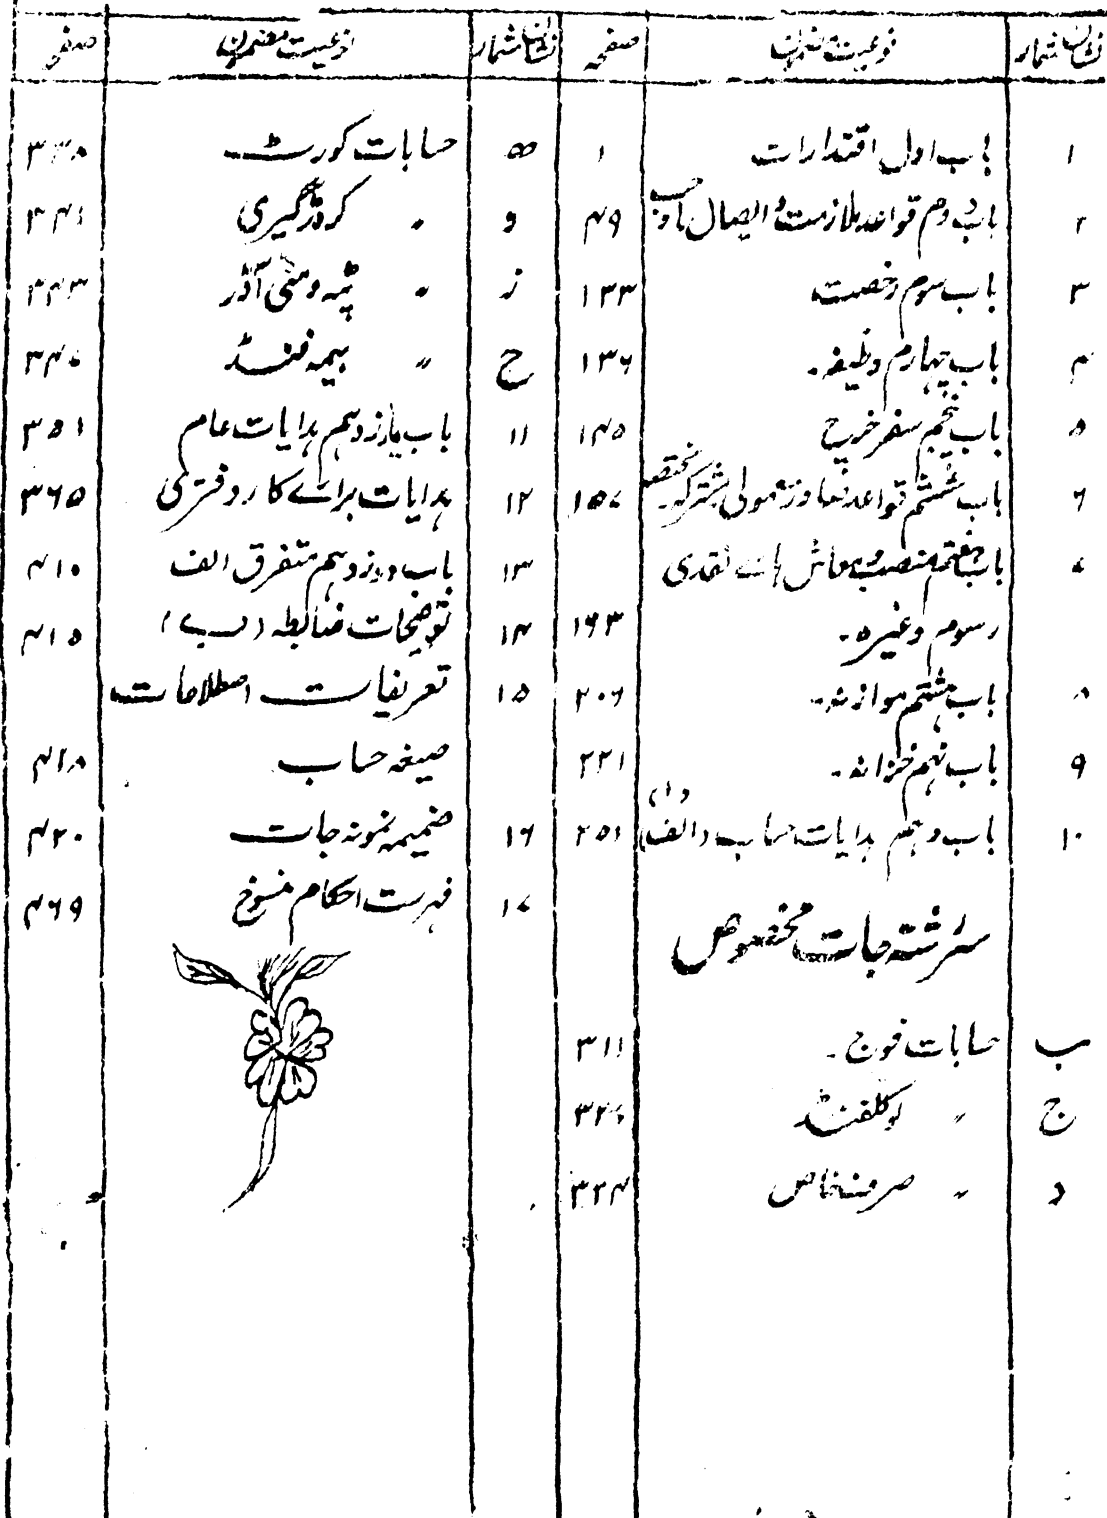 نشان شمار | نوعیت مضمون | صفحہ
۱ | باب اول اقتدارات | ۱
۲ | باب دوم قواعد ملازمت و ایصال | ۴۹
۳ | باب سوم رخصت | ۱۳۳
۴ | باب چہارم وظیفہ۔ | ۱۳۶
۵ | باب پنجم سفر خرچ | ۱۴۵
۶ | باب ششم قواعد | ۱۵۷
۷ | باب ہفتم منصب و معاش ہائے نقدی
رسوم وغیرہ۔ | ۱۶۳
۸ | باب ہشتم موازنہ۔ | ۲۰۶
۹ | باب نہم خزانہ۔ | ۲۲۱
۱۰ | باب دہم ہدایات حساب (الف) | ۲۵۱
سررشتہ جات مخصوص
ب | حسابات فوج۔ | ۳۱۱
ج | 〃 لوکلفنڈ | ۳۲۷
د | 〃 صرفخاص | ۳۳۴
نشان شمار | نوعیت مضمون | صفحہ
ھ | حسابات کورٹ | ۳۳۸
و | 〃 کروڑگیری | ۳۴۱
ز | 〃 ٹپہ و منی آڈر | ۳۴۳
ح | 〃 بیمہ فنڈ | ۳۴۷
۱۱ | باب یازدہم ہدایات عام | ۳۵۱
۱۲ | ہدایات برائے کاروفتری | ۳۶۵
۱۳ | باب دوازدہم متفرق الف | ۴۱۰
۱۴ | توضیحات ضابطہ (ب) | ۴۱۵
۱۵ | تعریفات اصطلاحات
صیغہ حساب | ۴۱۸
۱۶ | ضمیمہ نمونہ جات | ۴۲۰
۱۷ | فہرست احکام منسوخ | ۴۶۹